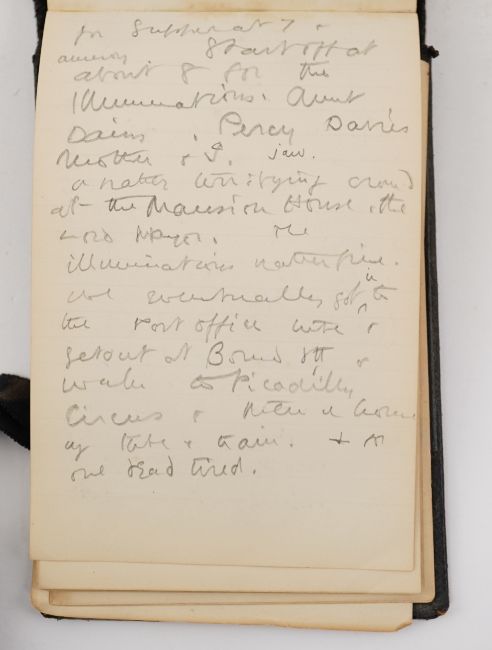 for Supper at 7 &
start off at
about 8 for the
Illuminations. Aunt
Daisy, Percy Davies
Mother & I. saw.
a rather terrifying crowd
at the Mansion House, the
Lord Mayor. The
illuminations rather fine.
we eventually got in to
the Post office tube &
get out at Bond St &
walk to Picadilly
Circus & then home
by tube & train.
one dead tired.